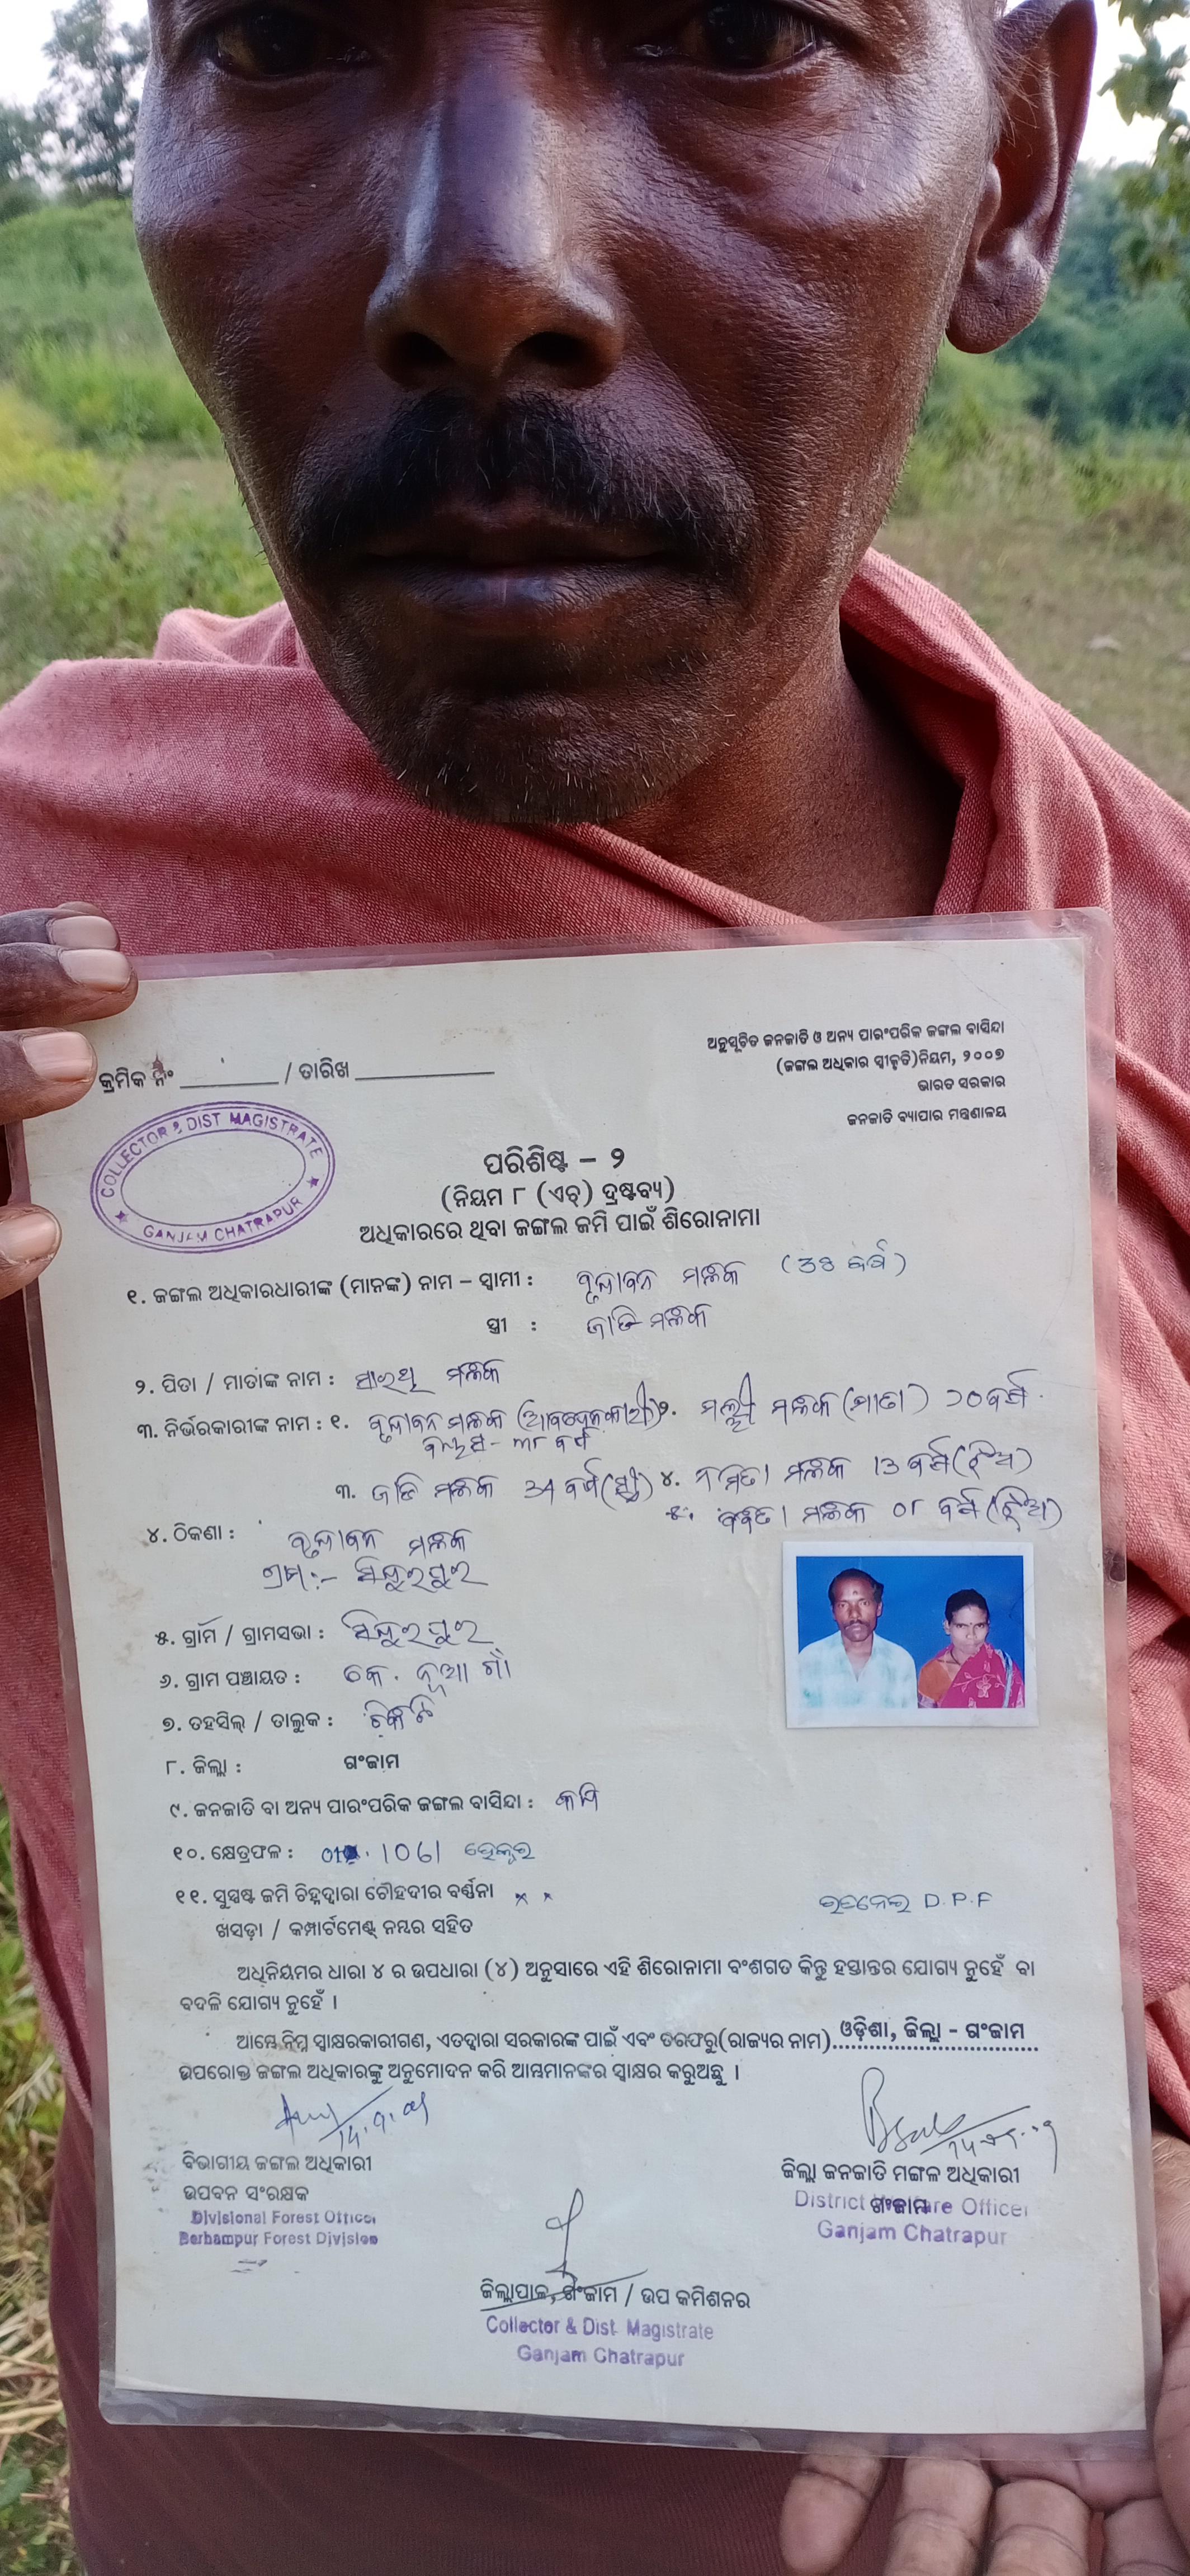 ଅନୁସୂଚିତ ଜନଜାତି ଓ ଅନ୍ୟ ପାରଂପରିକ ଜଙ୍ଗଲ ବାସିନ୍ଦା
(ଜଙ୍ଗଲ ଅଧିକାର ସ୍ୱୀକୃତି)ନିୟମ, ୨୦୦୭
ଭାରତ ସରକାର
ଜନଜାତି ବ୍ୟାପାର ମନ୍ତ୍ରଣାଳୟ
କ୍ରମିକ ନଂ / ତାରିଖ
COLLECTOR & DIST MAGISTRATE
GANJAM CHATRAPUR
ପରିଶିଷ୍ଟ – ୨
(ନିୟମ ୮ (ଏଚ୍) ଦ୍ରଷ୍ଟବ୍ୟ)
ଅଧିକାରରେ ଥିବା ଜଙ୍ଗଲ ଜମି ପାଇଁ ଶିରୋନାମା
୧. ଜଙ୍ଗଲ ଅଧିକାରଧାରୀଙ୍କ (ମାନଙ୍କ) ନାମ – ସ୍ୱାମୀ : ବୃନ୍ଦାବନ ମଲ୍ଲିକ
ସ୍ତ୍ରୀ : ଜାତି ମଲ୍ଲିକ
୨. ପିତା / ମାତାଙ୍କ ନାମ : ମଲ୍ଲିକ
୩. ନିର୍ଭରକାରୀଙ୍କ ନାମ : ୧. ବୃନ୍ଦାବନ ମଲ୍ଲିକ ୨. ମଲ୍ଲିକ (ମାତା) ୨୦ ବର୍ଷ
ବୟସ - ୩୮ ବର୍ଷ
୩. ଜାତି ମଲ୍ଲିକ ବର୍ଷ (ସ୍ତ୍ରୀ) ୪. ନମିତା ମଲ୍ଲିକ 13 ବର୍ଷ (ଝିଅ)
୫. ମଲ୍ଲିକ 0୮ ବର୍ଷ (ଝିଅ)
୪. ଠିକଣା : ବୃନ୍ଦାବନ ମଲ୍ଲିକ
ଗ୍ରାମ:- ସିନ୍ଦୁରପୁର
୫. ଗ୍ରାମ / ଗ୍ରାମସଭା : ସିନ୍ଦୁରପୁର
୬. ଗ୍ରାମ ପଞ୍ଚାୟତ : କେ. ନୂଆ ଗାଁ
୭. ତହସିଲ୍ / ତାଲୁକ : ଚିକିଟି
୮. ଜିଲ୍ଲା : ଗଂଜାମ
୯. ଜନଜାତି ବା ଅନ୍ୟ ପାରଂପରିକ ଜଙ୍ଗଲ ବାସିନ୍ଦା :
୧୦. କ୍ଷେତ୍ରଫଳ : 1061 ହେକ୍ଟର
୧୧. ସୁସ୍ପଷ୍ଟ ଜମି ଚିହ୍ନଦ୍ୱାରା ଚୌହଦୀର ବର୍ଣ୍ଣନା x x D.P.F
ଖସଡ଼ା / କମ୍ପାର୍ଟମେଣ୍ଟ୍ ନମ୍ବର ସହିତ
ଅଧିନିୟମର ଧାରା ୪ ର ଉପଧାରା (୪) ଅନୁସାରେ ଏହି ଶିରୋନାମା ବଂଶଗତ କିନ୍ତୁ ହସ୍ତାନ୍ତର ଯୋଗ୍ୟ ନୁହେଁ ବା
ବଦଳି ଯୋଗ୍ୟ ନୁହେଁ ।
ଆମ୍ଭେ ନିମ୍ନ ସ୍ୱାକ୍ଷରକାରୀଗଣ, ଏତଦ୍ୱାରା ସରକାରଙ୍କ ପାଇଁ ଏବଂ ତରଫରୁ(ରାଜ୍ୟର ନାମ) ଓଡ଼ିଶା, ଜିଲ୍ଲା - ଗଂଜାମ
ଉପରୋକ୍ତ ଜଙ୍ଗଲ ଅଧିକାରକୁ ଅନୁମୋଦନ କରି ଆମ୍ଭମାନଙ୍କର ସ୍ୱାକ୍ଷର କରୁଅଛୁ ।
ବିଭାଗୀୟ ଜଙ୍ଗଲ ଅଧିକାରୀ
ଉପବନ ସଂରକ୍ଷକ
Divisional Forest Officer
Berhampur Forest Division
ଜିଲ୍ଲା ଜନଜାତି ମଙ୍ଗଳ ଅଧିକାରୀ
ଗଂଜାମ
District Welfare Officer
Ganjam Chatrapur
ଜିଲ୍ଲାପାଳ, ଗଂଜାମ / ଉପ କମିଶନର
Collector & Dist. Magistrate
Ganjam Chatrapur